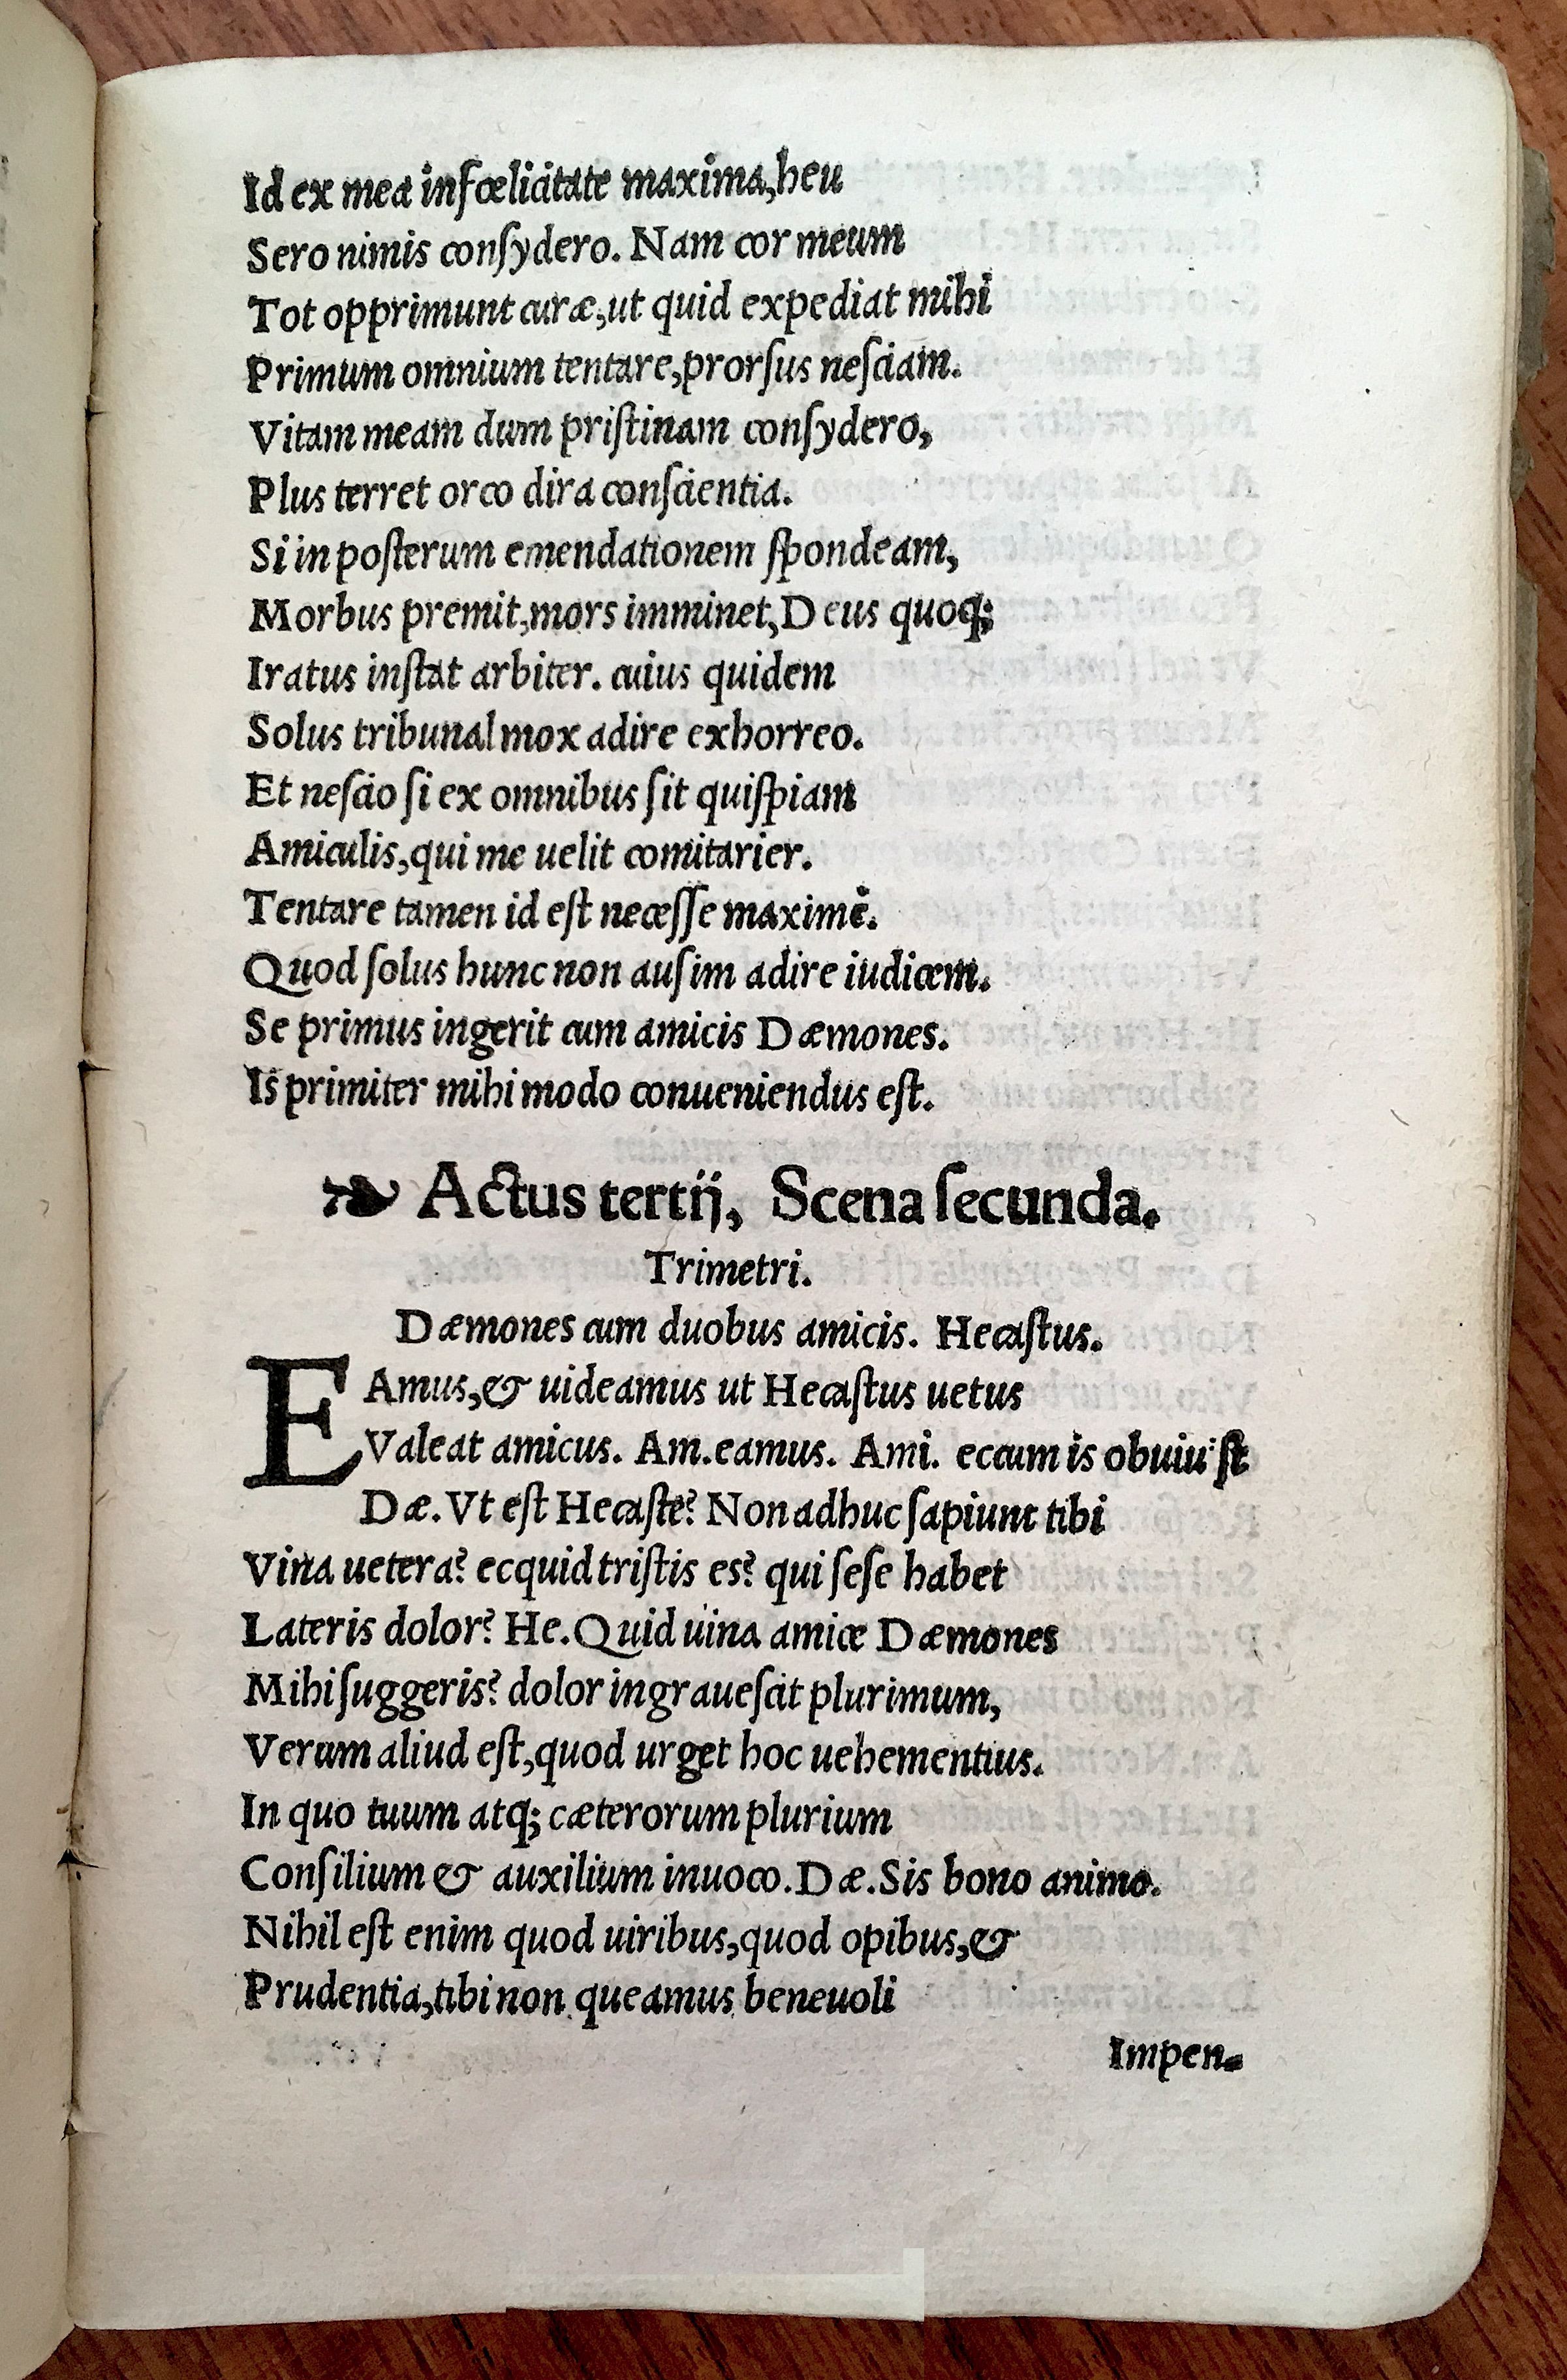 Id ex mea infœlicitate maxima, heu
Sero nimis conſydero. Nam cor meum
Tot opprimunt curæ, ut quid expediat mihi
Primum omnium tentare, prorſus neſciam.
Vitam meam dum priſtinam conſydero,
Plus terret orco dira conſcientia.
Si in poſterum emendationem ſpondeam,
Morbus premit, mors imminet, Deus quoq;
Iratus inſtat arbiter. cuius quidem
Solus tribunal mox adire exhorreo.
Et neſcio ſi ex omnibus ſit quiſpiam
Amiculis, qui me uelit comitarier.
Tentare tamen id eſt neceſſe maximè.
Quod ſolus hunc non auſim adire iudicem.
Se primus ingerit cum amicis Dæmones.
Is primiter mihi modo conueniendus eſt.
❧ Actus tertij, Scena ſecunda.
Trimetri.
Dæmones cum duobus amicis. Hecaſtus.
EAmus, & uideamus ut Hecaſtus uetus
Valeat amicus. Am. eamus. Ami. eccum is obuiu'ſt
Dæ. Vt eſt Hecaſte? Non adhuc ſapiunt tibi
Vina uetera? ecquid triſtis es? qui ſeſe habet
Lateris dolor? He. Quid uina amice Dæmones
Mihi ſuggeris? dolor ingraueſcit plurimum,
Verum aliud eſt, quod urget hoc uehementius.
In quo tuum atq; cæterorum plurium
Conſilium & auxilium inuoco. Dæ. Sis bono animo.
Nihil eſt enim quod uiribus, quod opibus, &
Prudentia, tibi non queamus beneuoli
Impen-